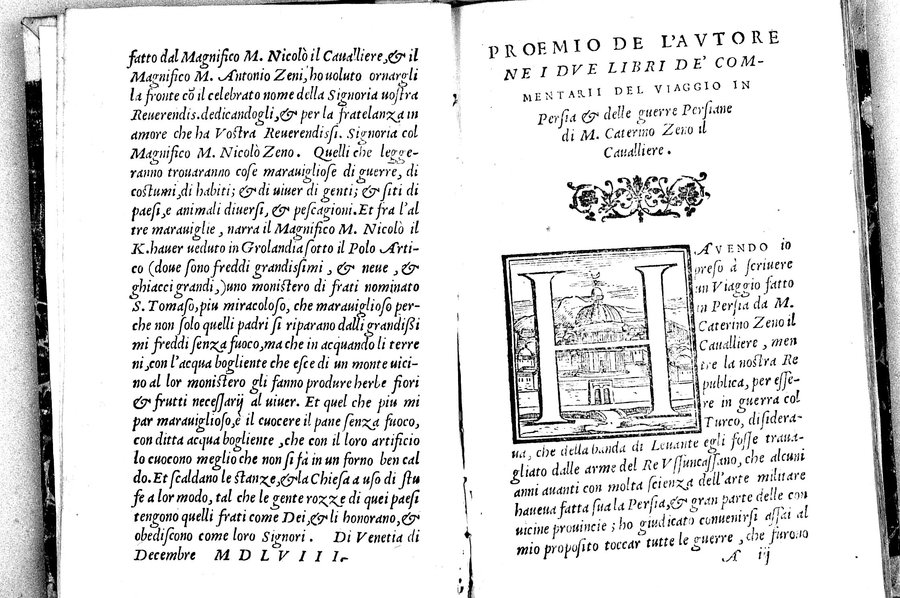 fatto dal Magnifico M. Nicolò il Caualliere, & il
Magnifico M. Antonio Zeni, ho uoluto ornargli
la fronte cõ il celebrato nome della Signoria uostra
Reuerendis. dedicandogli, & per la fratelanza in
amore che ha Vostra Reuerendissi. Signoria col
Magnifico M. Nicolò Zeno. Quelli che legge-
ranno trouaranno cose marauigliose di guerre, di
costumi, di habiti; & di uiuer di genti; & siti di
paesi, e animali diuersi, & pescagioni. Et fra l'al
tre marauiglie, narra il Magnifico M. Nicolò il
K. hauer ueduto in Grolandia sotto il Polo Arti-
co (doue sono freddi grandissimi, & neue, &
ghiacci grandi,) uno monistero di frati nominato
S. Tomaso, piu miracoloso, che marauiglioso per-
che non solo quelli padri si riparano dalli grandißi
mi freddi senza fuoco, ma che in acquando li terre
ni, con l'acqua bogliente che esce di un monte uici-
no al lor monistero gli fanno produre herbe fiori
& frutti necessarij al uiuer. Et quel che piu mi
par marauiglioso, è il cuocere il pane senza fuoco,
con ditta acqua bogliente, che con il loro artificio
lo cuocono meglio che non si fa in un forno ben cal
do. Et scaldano le stanze, & la Chiesa a uso di stu
fe a lor modo, tal che le gente rozze di quei paesi
tengono quelli frati come Dei, & li honorano, &
obediscono come loro Signori. Di Venetia di
Decembre M D L V I I I.
PROEMIO DE L'AVTORE
NE I DVE LIBRI DE' COM-
MENTARII DEL VIAGGIO IN
Persia & delle guerre Persiane
di M. Caterino Zeno il
Caualliere.
HAVENDO io
preso à scriuere
un Viaggio fatto
in Persia da M.
Caterino Zeno il
Caualliere, men
tre la nostra Re
publica, per esse-
re in guerra col
Turco, disidera-
ua, che della banda di Leuante egli fosse traua-
gliato dalle arme del Re Vssuncassano, che alcuni
anni auanti con molta scienza dell'arte militare
haueua fatta sua la Persia, & gran parte delle con
uicine prouincie; ho giudicato conuenirsi assai al
mio proposito toccar tutte le guerre, che furono
A iij